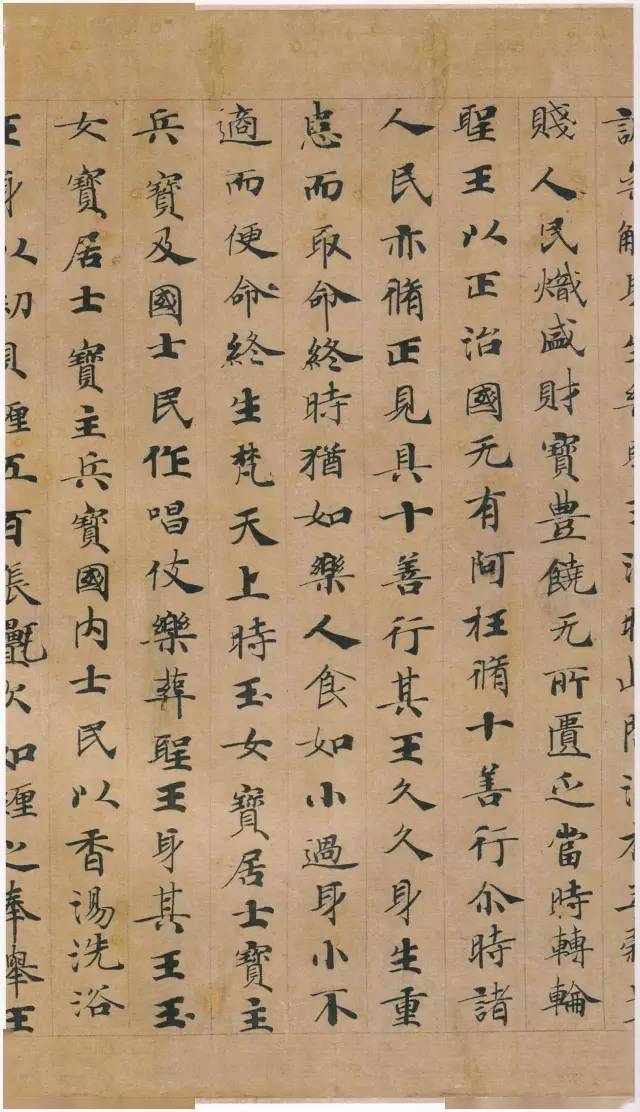 賤人民熾盛財寶豊饒无所匱乏當時轉輪
聖王以正治國无有阿枉脩十善行尒時諸
人民亦脩正見具十善行其王久久身生重
患而取命終時猶如樂人食如小過身小不
適而便命終生梵天上時玉女寶居士寶主
兵寶及國士民作唱伎樂葬聖王身其王玉
女寶居士寶主兵寶國内士民以香湯洗浴
王身以劫貝纏五百張㲲次如纏之奉舉王